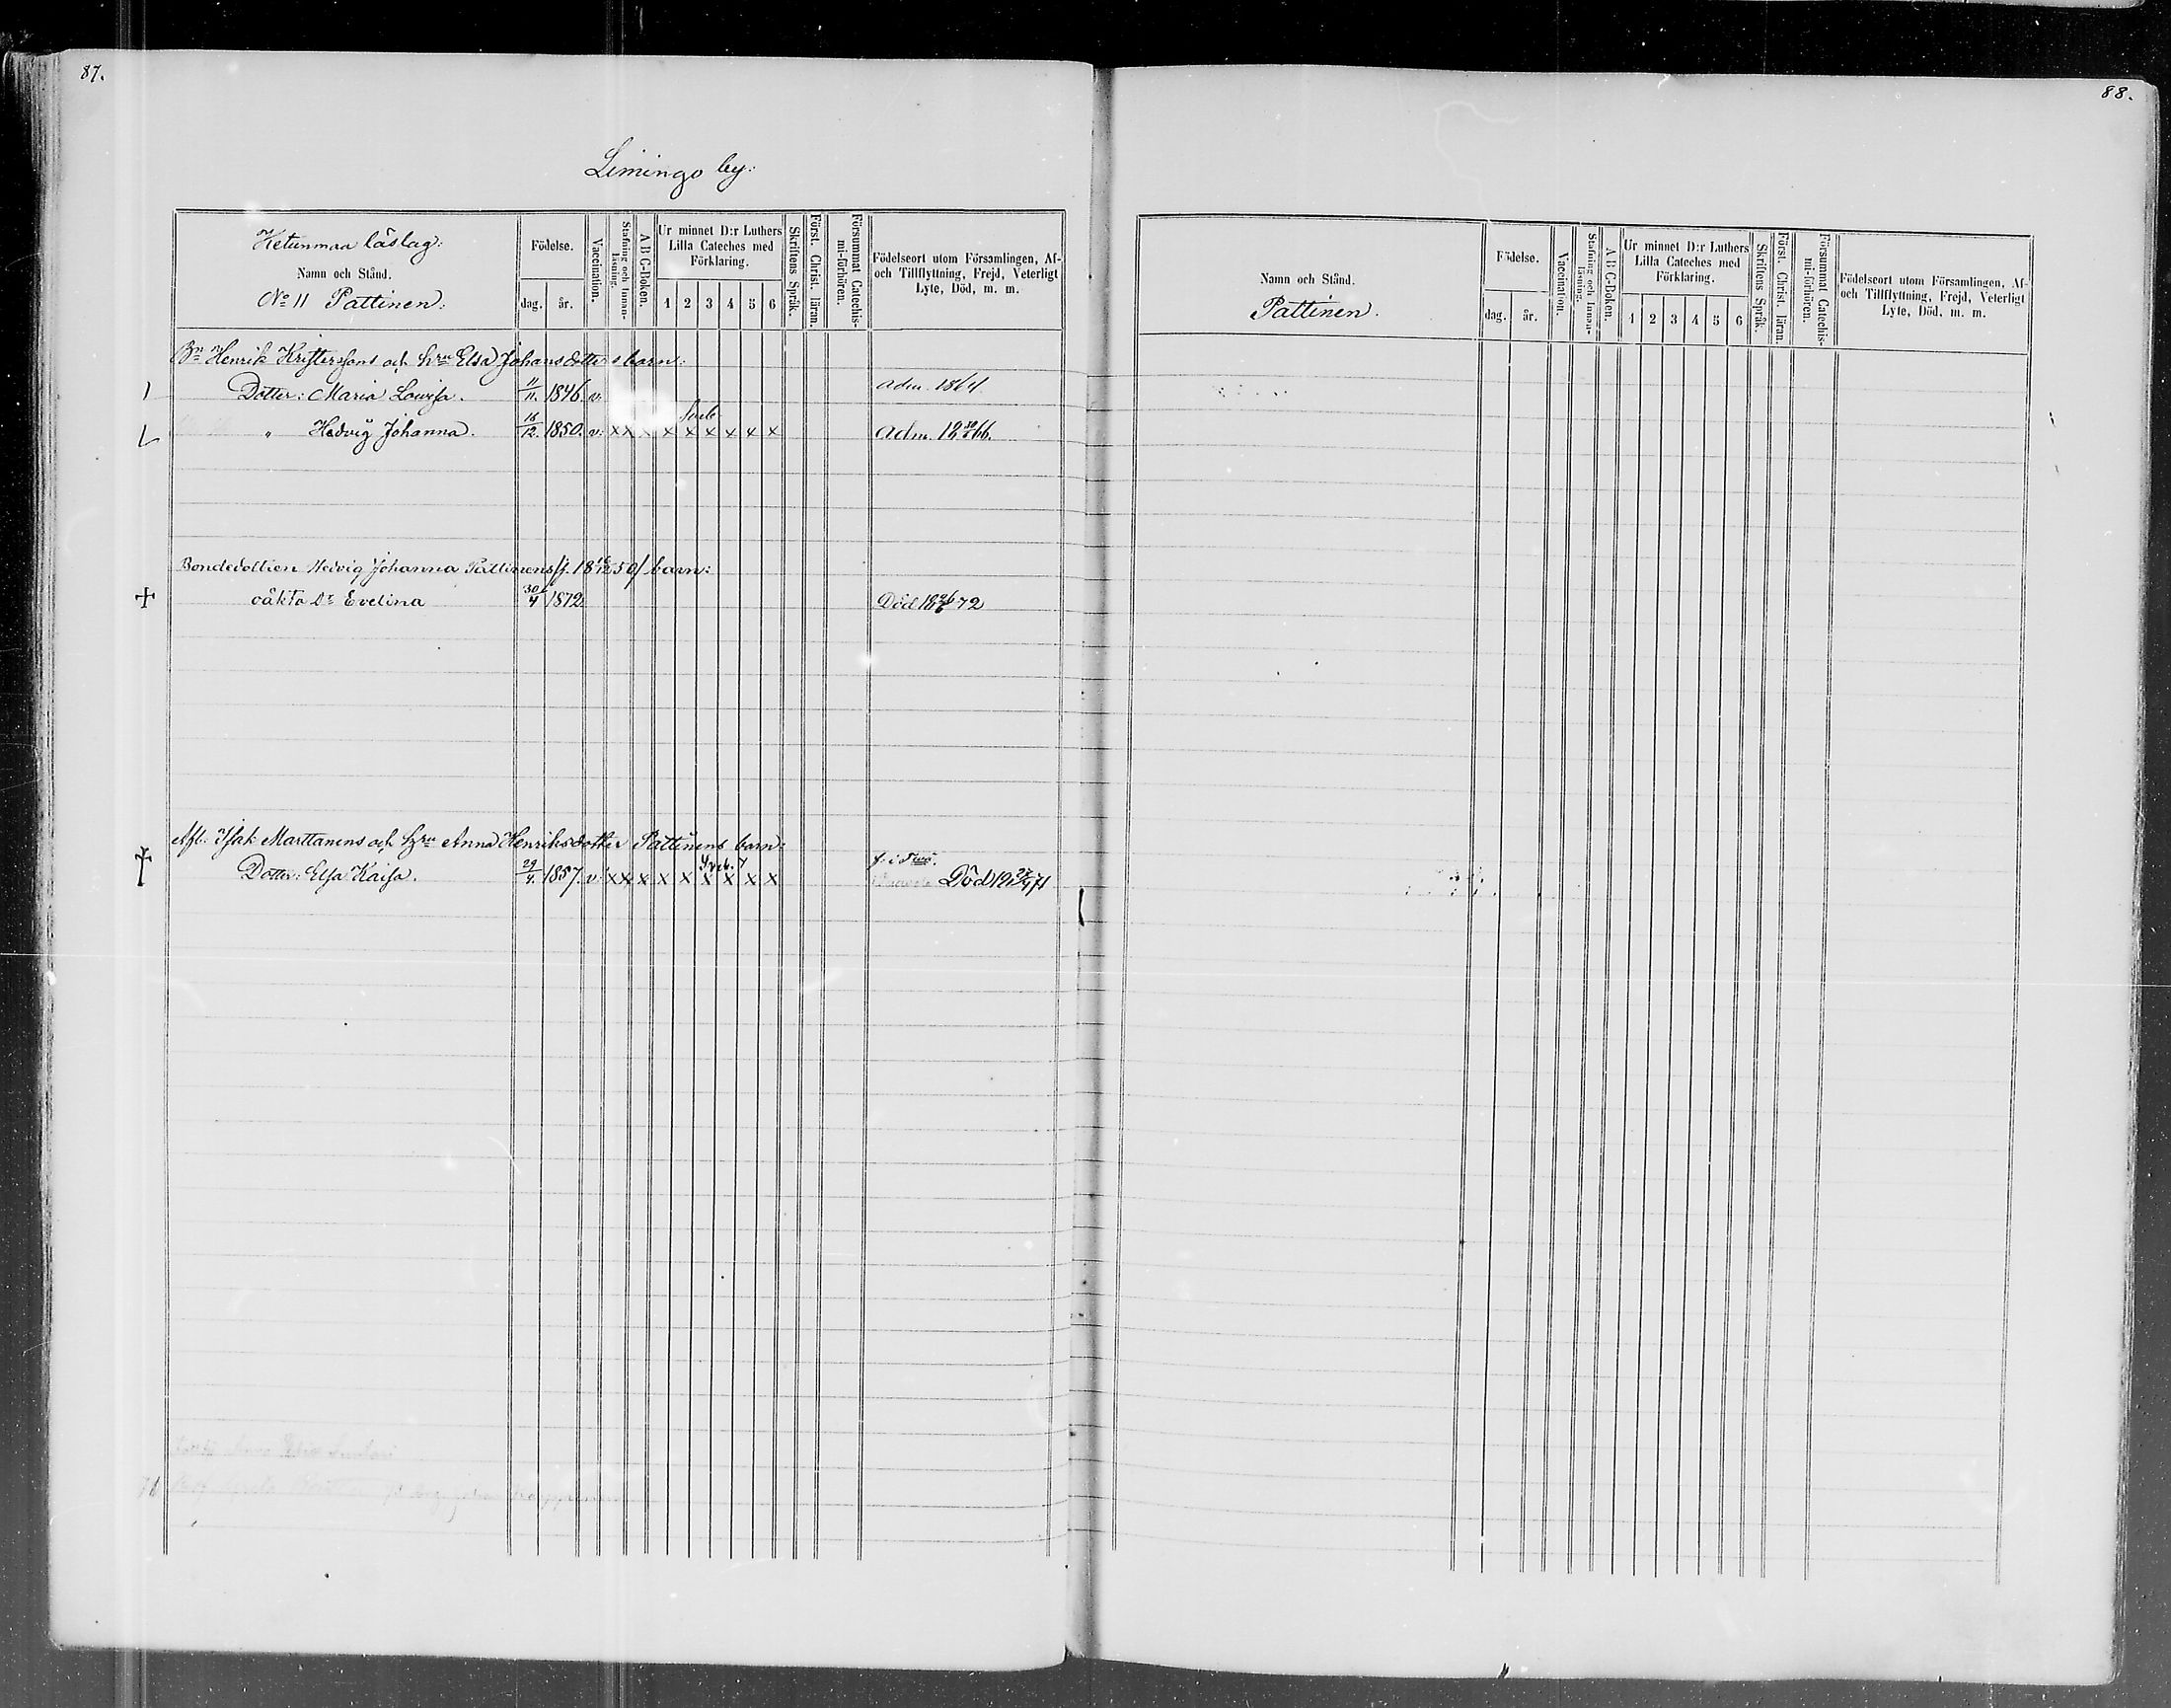 87.
Limingo by:
Ketunmaa läslag:
Namn och Stånd.
No 11 Pattinen:
Födelse.
dag. år.
Vaccination.
Stafning och Innan-
läsning.
A B C-Boken.
Ur minnet D:r Luthers
Lilla Cateches med
Förklaring.
1 2 3 4 5 6
Skriftens Språk.
Först. Christ. läran.
Försummat Catechis-
mi-förhören.
Födelseort utom Församlingen, Af-
och Tillflyttning, Frejd, Veterligt
Lyte, Död, m. m.
Bn Henrik Kristerssons och hru Elsa Johansdotters barn:
Dotter: Maria Lovisa. 11/11. 1846. v. adm. 1864
" Hedvig Johanna. 18/12. 1850. v: x x x x x x x x x adm. 18 66.
Bondedottren Hedvig Johanna Pattinens /f. 18 50/ barn:
oäkta Dr Evelina 30/4 1872 Död 18 26/6 72
Afl. Isak Marttanens och hru Anna Henriksdotter Pattinens barn:
f. i
Dotter: Elsa Kaisa. 29/4. 1857. v: x x x x x x x x x Död 18 71
88.
Namn och Stånd.
Pattinen.
Födelse.
dag. år.
Vaccination.
Stafning och Innan-
läsning.
A B C-Boken.
Ur minnet D:r Luthers
Lilla Cateches med
Förklaring.
1 2 3 4 5 6
Skriftens Språk.
Först. Christ. läran.
Försummat Catechis-
mi-förhören.
Födelseort utom Församlingen, Af-
och Tillflyttning, Frejd, Veterligt
Lyte, Död, m. m.